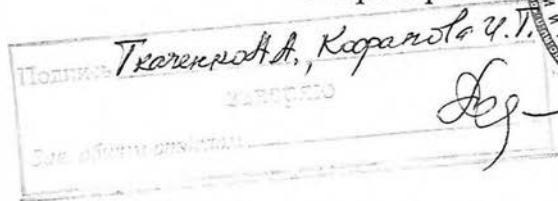 Подпись Ткаченко А.А., Кофанова И.Г.
заверяю
Зав. общим отделом